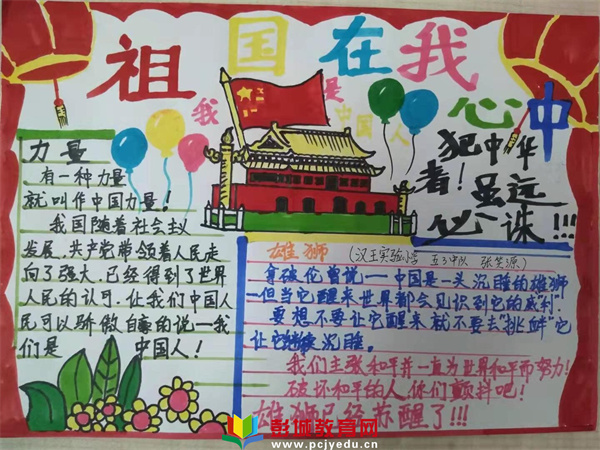 祖国在我心中
我是中国人
犯中华
者！虽远
必诛！！！
力量
有一种力量
就叫作中国力量！
我国随着社会主义
发展，共产党带领着人民走
向了强大，已经得到了世界
人民的认可，让我们中国人
民可以骄傲自豪的说一我
们是 中国人！
雄狮
（汉王实验小学 五3中队 张笑源）
拿破伦曾说——中国是一头沉睡的雄狮
但当它醒来世界都会见识到它的威
要想不要让它醒来就不要去“挑衅”它
让它继续沉睡。
我们主张和平并一直为世界和平而努力！
破坏和平的人，你们颤抖吧！
雄狮已经苏醒了！！！
彭城教育网
www.pcjyedu.cn